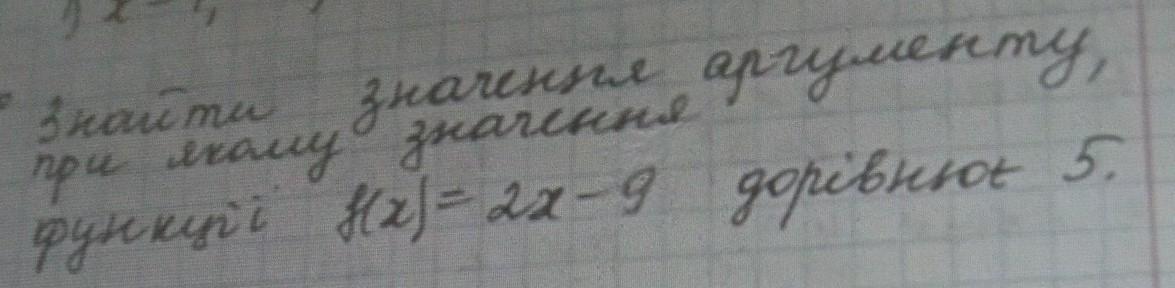 Знайти значення аргументу,
при якому значення
функції f(x) = 2x - 9 дорівнює 5.